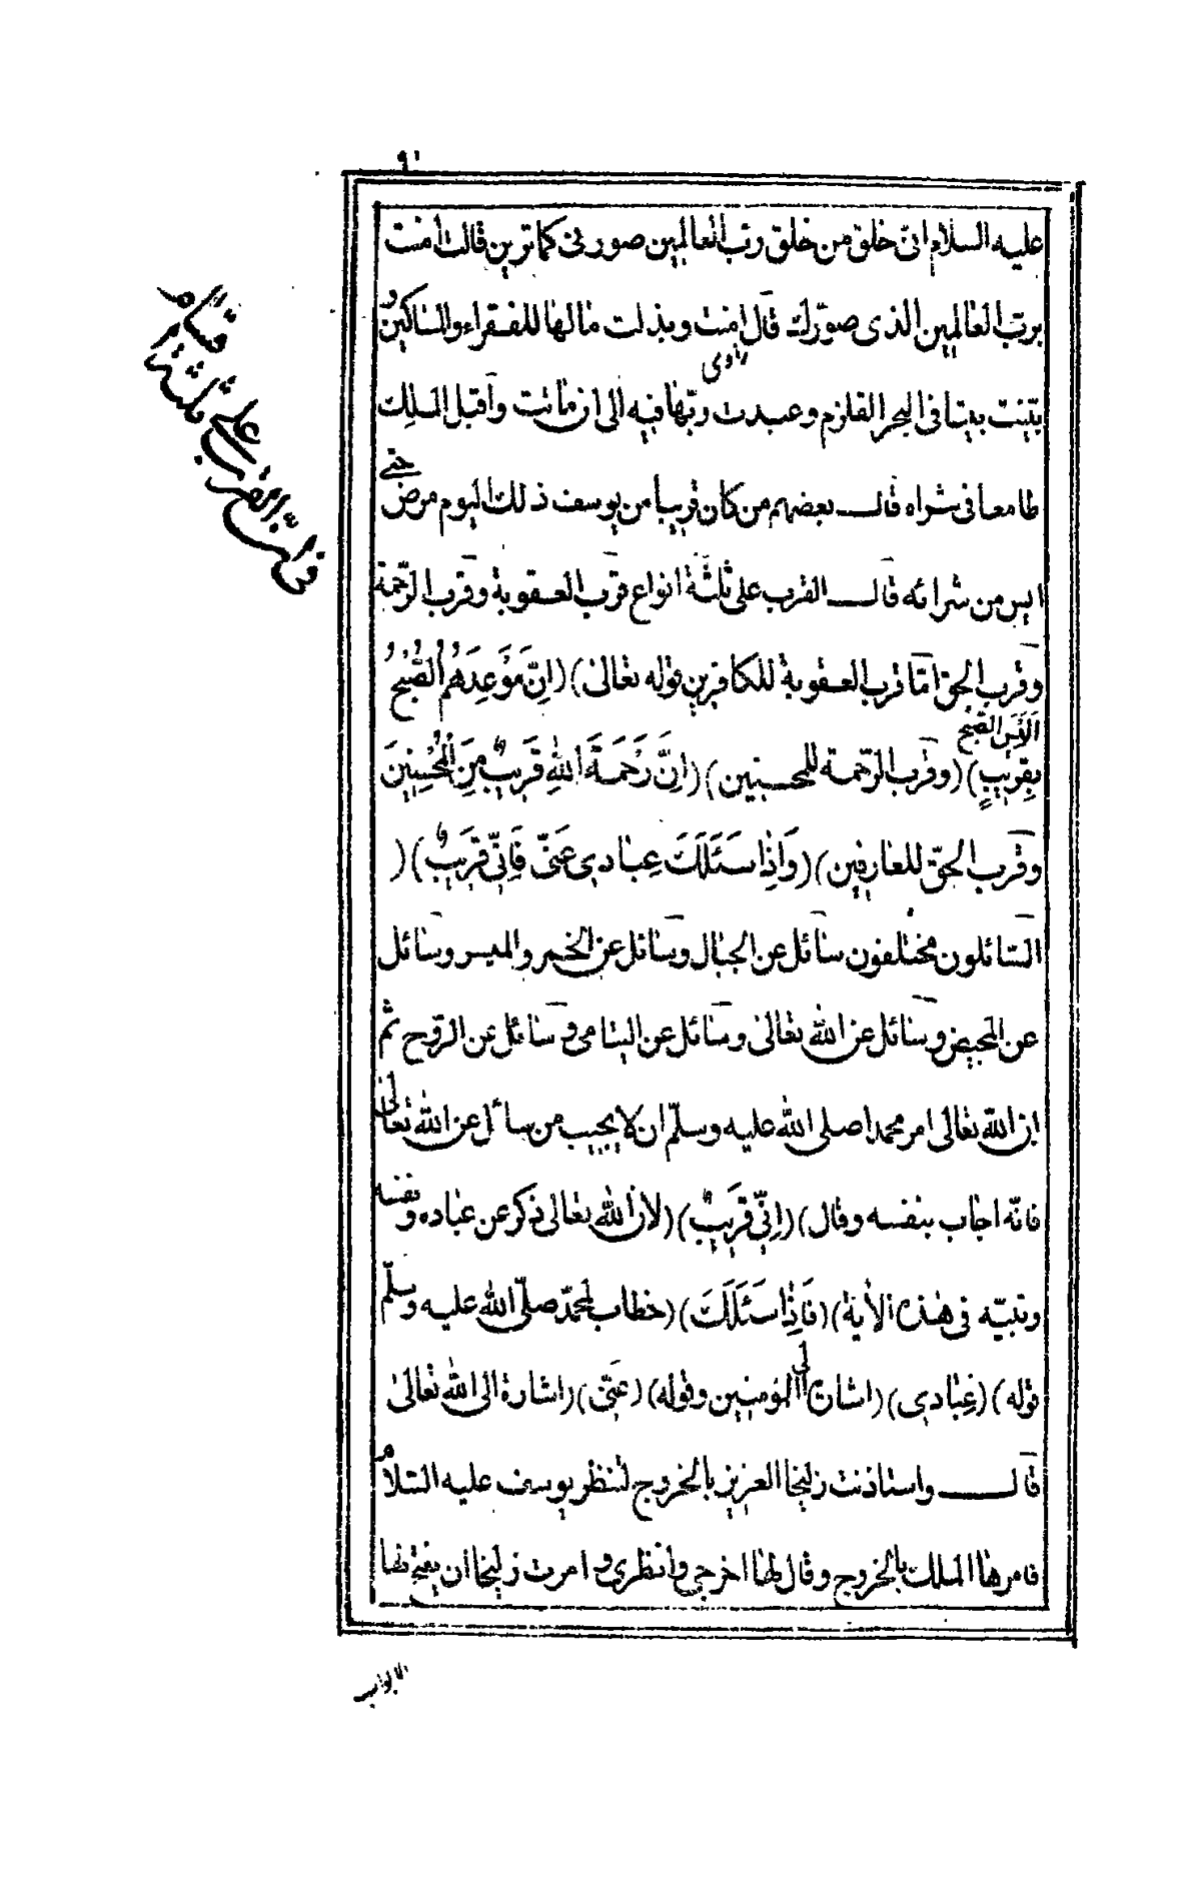 ٩١
عليه السلام انى خلق من خلق رب العالمين صورنى كما ترين قالت امنت
برب العالمين الذى صوّرك قال امنت وبذلت مالها للفقراء والمساكين و
بنيت بيتا فى البحر القلزم وعبدت ربّها فيه الى ان ماتت وأقبل الملك
طامعا فى شراه قال بعضهم من كان قريبا من يوسف ذلك اليوم مرض حتى
ايس من شرائه قال القرب على ثلثة انواع قرب العقوبة وقرب الرّحمة
وقرب الحق امّا قرب العقوبة للكافرين قوله تعالى ) ( اِنَّ مَوْعِدَهُمُ الصُّبْحُ
اَلَيْسَ الصّبح
بِقَرِيبٍ ) ( وقرب الرّحمة للمحسنين ) ( اِنَّ رَحْمَةَ اللهِ قَرِيبٌ مِنَ الْمُحْسِنِينَ
وقرب الحقّ للعارفين ) ( وَاِذَا سَئَلَكَ عِبَادِى عَنّى فَاِنِّى قَرِيبٌ ) (
السّائلون مختلفون سائل عن الجبال وسائل عن الخمر والميسر وسائل
عن المحيض وسائل عن الله تعالى وسائل عن اليتامى وسائل عن الرّوح ثم
ان الله تعالى امر محمدا صلى الله عليه وسلّم ان لا يجيب من سائل عن الله تعالى
فانّه اجاب بنفسه وقال ) ( اِنِّى قَرِيبٌ ) ( لان الله تعالى ذكر عن عباده ونفسه
ونبيّه فى هذه الأية ) ( فَاِذَا سَئَلَكَ ) ( خطاب لمحمّد صلّى الله عليه وسلّم
قوله ) ( عِبَادِى ) ( اشارة الى المؤمنين وقوله ) ( عَنّى ) ( اشارة الى الله تعالى
قال واستاذنت زليخا العزيز بالخروج لتنظر يوسف عليه السّلام
فامرها الملك بالخروج وقال لها اخرجى وانظرى وامرت زليخا ان يفتح لها
الابواب
فى انّ القرب على ثلثة
اقسام